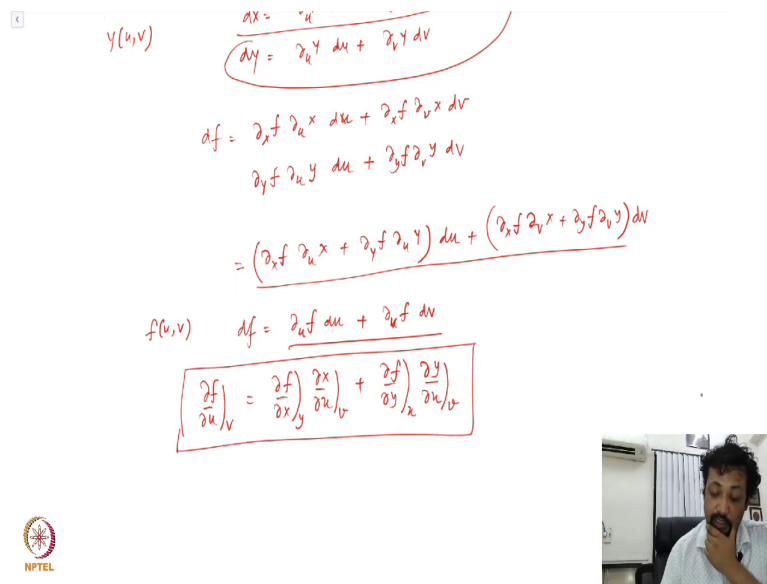 dx = ∂ᵤ
y(u,v) dy = ∂ᵤy du + ∂ᵥy dv
df = ∂ₓf ∂ᵤx du + ∂ₓf ∂ᵥx dv
∂yf ∂ᵤy du + ∂yf ∂ᵥy dv
= (∂ₓf ∂ᵤx + ∂yf ∂ᵤy) du + (∂ₓf ∂ᵥx + ∂yf ∂ᵥy) dv
f(u,v) df = ∂ᵤf du + ∂ᵥf dv
∂f/∂u)ᵥ = ∂f/∂x)y ∂x/∂u)ᵥ + ∂f/∂y)ₓ ∂y/∂u)ᵥ
NPTEL